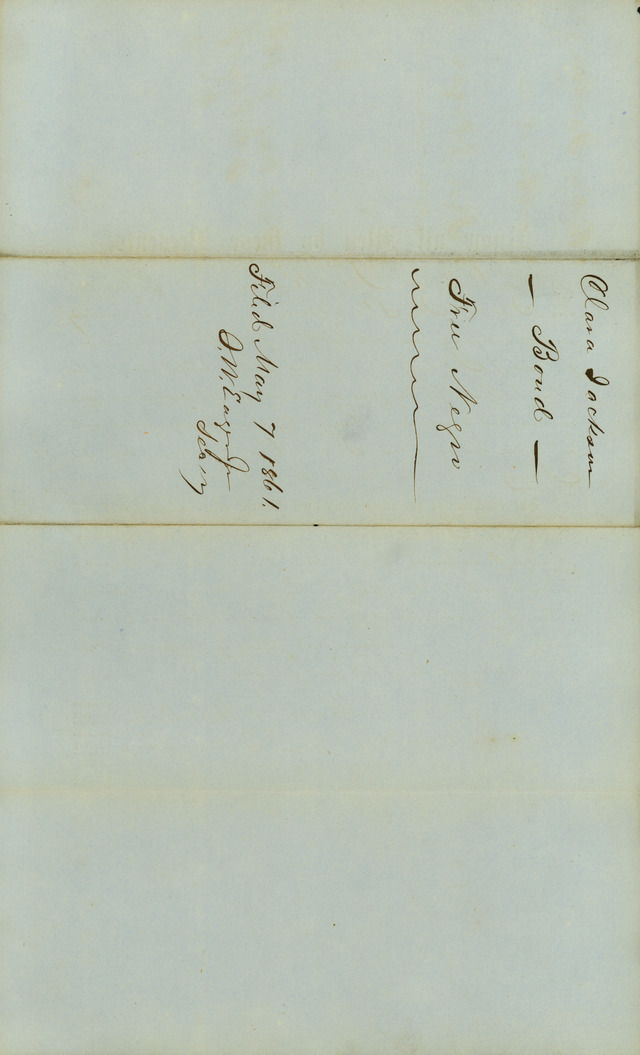 Clara Jackson
— Bond —
Free Negro
Filed May 7 1861.